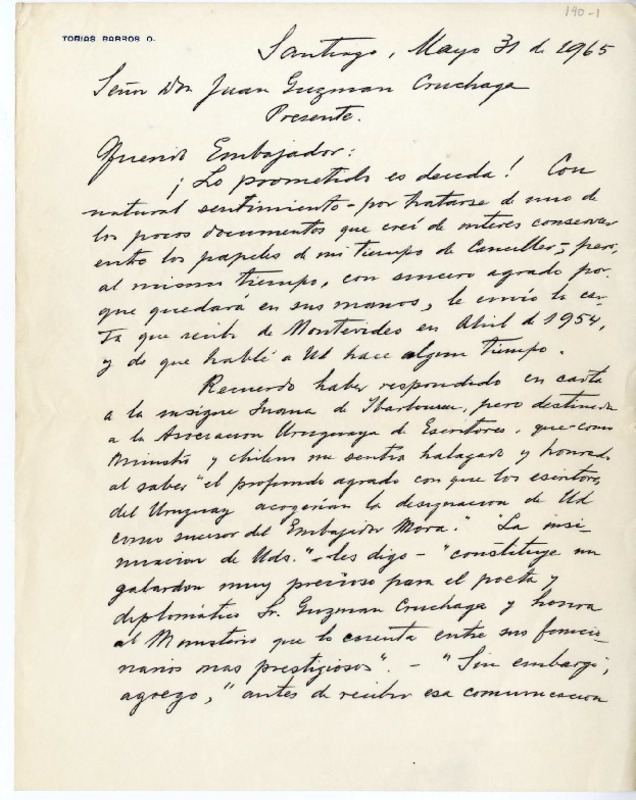 190-1
TOBIAS BARROS O.
Santiago, Mayo 31 de 1965
Señor Don Juan Guzman Cruchaga
Presente.
Querido Embajador:
¡Lo prometido es deuda! Con
natural sentimiento - por tratarse de uno de
los pocos documentos que creí de interes conservar
entre los papeles de mi tiempo de Canciller -, pero,
al mismo tiempo, con sincero agrado por-
que quedará en sus manos, le envío la car-
ta que recibí de Montevideo en Abril de 1954,
y de que hablé a Ud hace algun tiempo.
Recuerdo haber respondido en carta
a la insigne Juana de Ibarbourou, pero destinada
a la Asociacion Uruguaya de Escritores, que - como
Ministro y chileno me sentia halagado y honrado
al saber "el profundo agrado con que los escritores
del Uruguay acogerian la designacion de Ud
como sucesor del Embajador Mora." "La insi-
nuacion de Uds." - les digo - "constituye un
galardon muy precioso para el poeta y
diplomático Sr. Guzman Cruchaga y honra
al Ministerio que lo cuenta entre sus funcio-
narios mas prestigiosos". - "Sin embargo",
agrego, "antes de recibir esa comunicacion